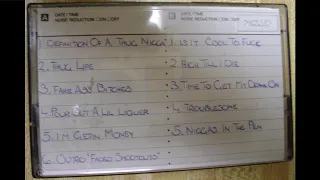 A DATE/TIME
NOISE REDUCTION □ON □OFF
B DATE/TIME
NOISE REDUCTION □ON □OFF
1. DEFINITION OF A THUG NIGGA
2. THUG LIFE
3. FAKE ASS BITCHES
4. POUR OUT A LIL LIQUER
5. I'M GETTIN MONEY
6. OUTRO "FADED
1. IS IT COOL TO FUCK
2. RICH TILL I DIE
3. TIME TO GET IT ON
4. TROUBLESOME
5. NIGGAS IN THE PEN